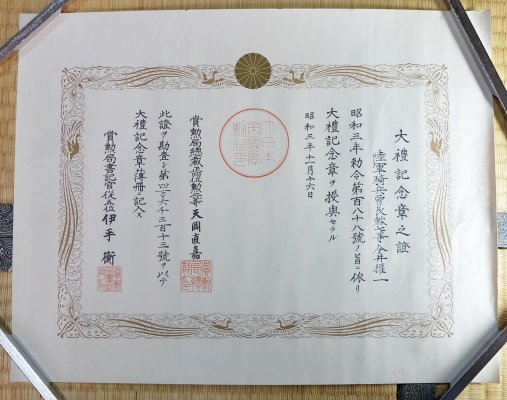 大禮記念章之證
陸軍騎兵曹長勲八等今井權一
昭和三年勅令第百八十八號ノ旨ニ依リ
大禮記念章ヲ授與セラル
昭和三年十一月十六日
大日本
帝國賞
勲局印
賞勲局總裁 天岡直嘉
此證ヲ勘査シ第四万六千三百十三號ヲ以テ
大禮記念章簿册ニ記入ス
賞勲局書記官從五位 伊手衡